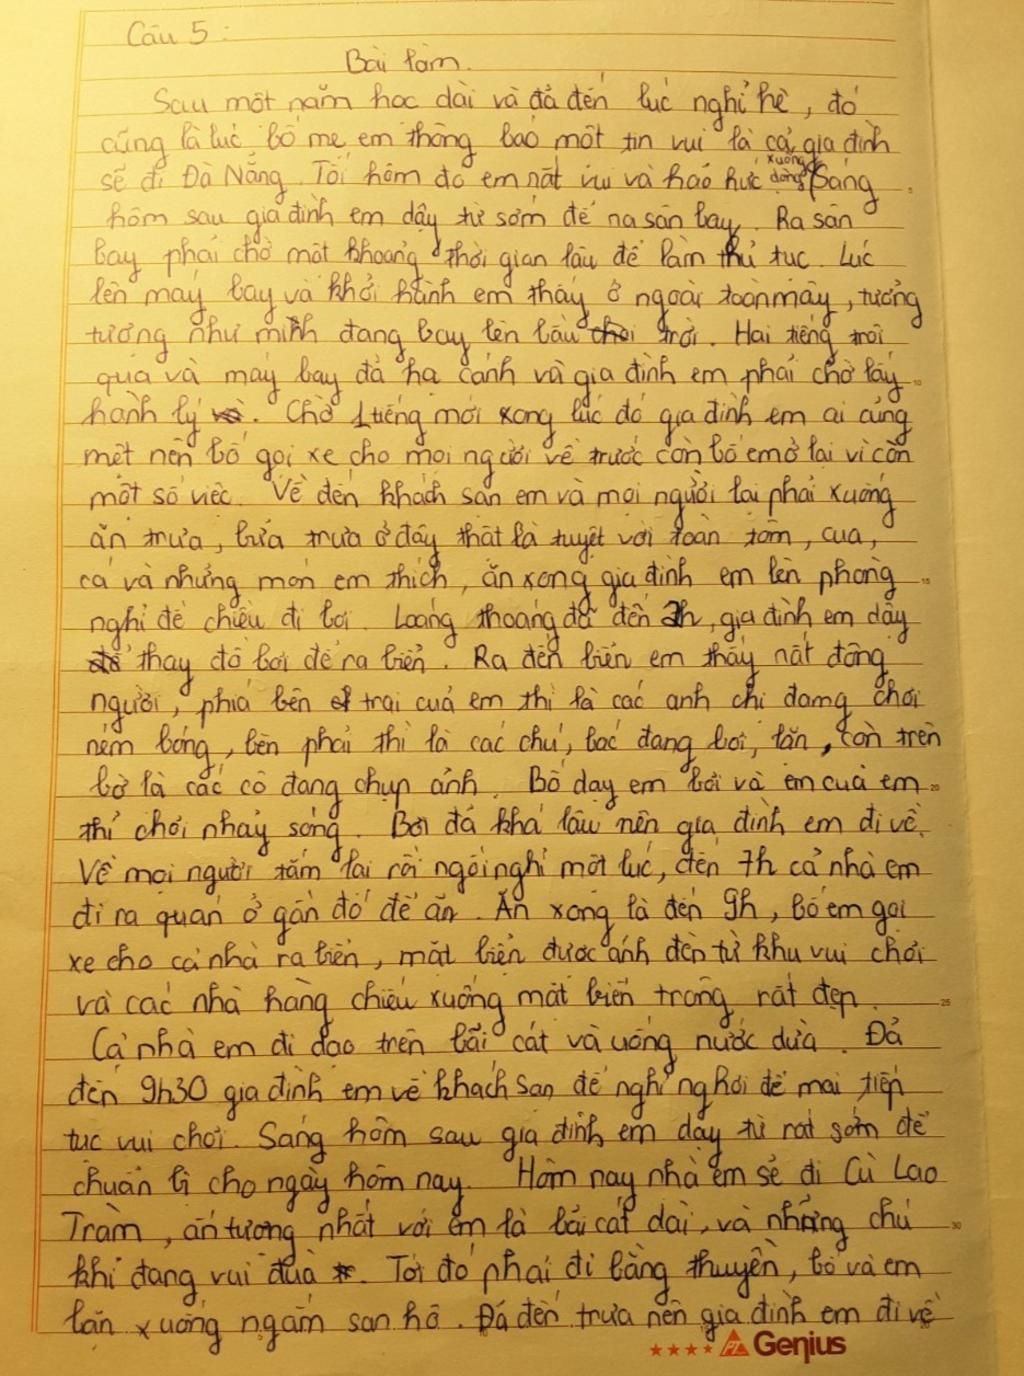 Câu 5:
Bài làm.
Sau một năm học dài và đã đến lúc nghỉ hè, đó
cũng là lúc bố mẹ em thông báo một tin vui là cả gia đình
sẽ đi Đà Nẵng. Tối hôm đó em nất vui và háo hức xuống dòng Sáng
hôm sau gia đình em dậy từ sớm để na sân bay. Ra sân
bay phải chờ một khoảng thời gian lâu để làm thủ tục. Lúc
lên máy bay và khởi hành em thấy ở ngoài toàn mây, tưởng
tượng như mình đang bay lên bầu trời. Hai tiếng trôi
qua và máy bay đã hạ cánh và gia đình em phải chờ lấy
hành lý. Chờ 1 tiếng mới xong lúc đó gia đình em ai cũng
mệt nên bố gọi xe cho mọi người về trước còn bố em ở lại vì còn
một số việc. Về đến khách sạn em và mọi người lại phải xuống
ăn trưa, bữa trưa ở đây thật là tuyệt vời toàn tôm, cua,
cá và những món em thích, ăn xong gia đình em lên phòng
nghỉ để chiều đi bơi Loáng thoáng đã đến 2h, gia đình em dậy
thay đồ bơi để ra biển. Ra đến biển em thấy nất đông
người, phía bên trái của em thì là các anh chị đamg chơi
ném bóng, bên phải thì là các chú, bác đang bơi, lặn, còn trên
bờ là các cô đang chụp ảnh. Bố dạy em bơi và em của em
thì chơi nhảy sóng. Bơi đã khá lâu nên gia đình em đi về.
Về mọi người tắm lại rồi ngồi nghỉ một lúc, đến 7h cả nhà em
đi ra quán ở gần đó để ăn. Ăn xong là đến 9h, bố em gọi
xe cho cả nhà ra biển, mặt biển được ánh đèn từ khu vui chơi
và các nhà hàng chiếu xuống mặt biển trông rất đẹp.
Cả nhà em đi dạo trên bãi cát và uống nước dừa. Đã
đến 9h30 gia đình em về khách sạn để nghỉ ngơi để mai tiếp
tục vui chơi. Sáng hôm sau gia đình em dậy từ rất sớm để
chuẩn bị cho ngày hôm nay. Hôm nay nhà em sẽ đi Cù Lao
Tràm, ấn tượng nhất với em là bãi cát dài, và những chú
khỉ đang vui đùa. Tới đó phải đi bằng thuyền, bố và em
lặn xuống ngắm san hô. Đã đến trưa nên gia đình em đi về
Genius